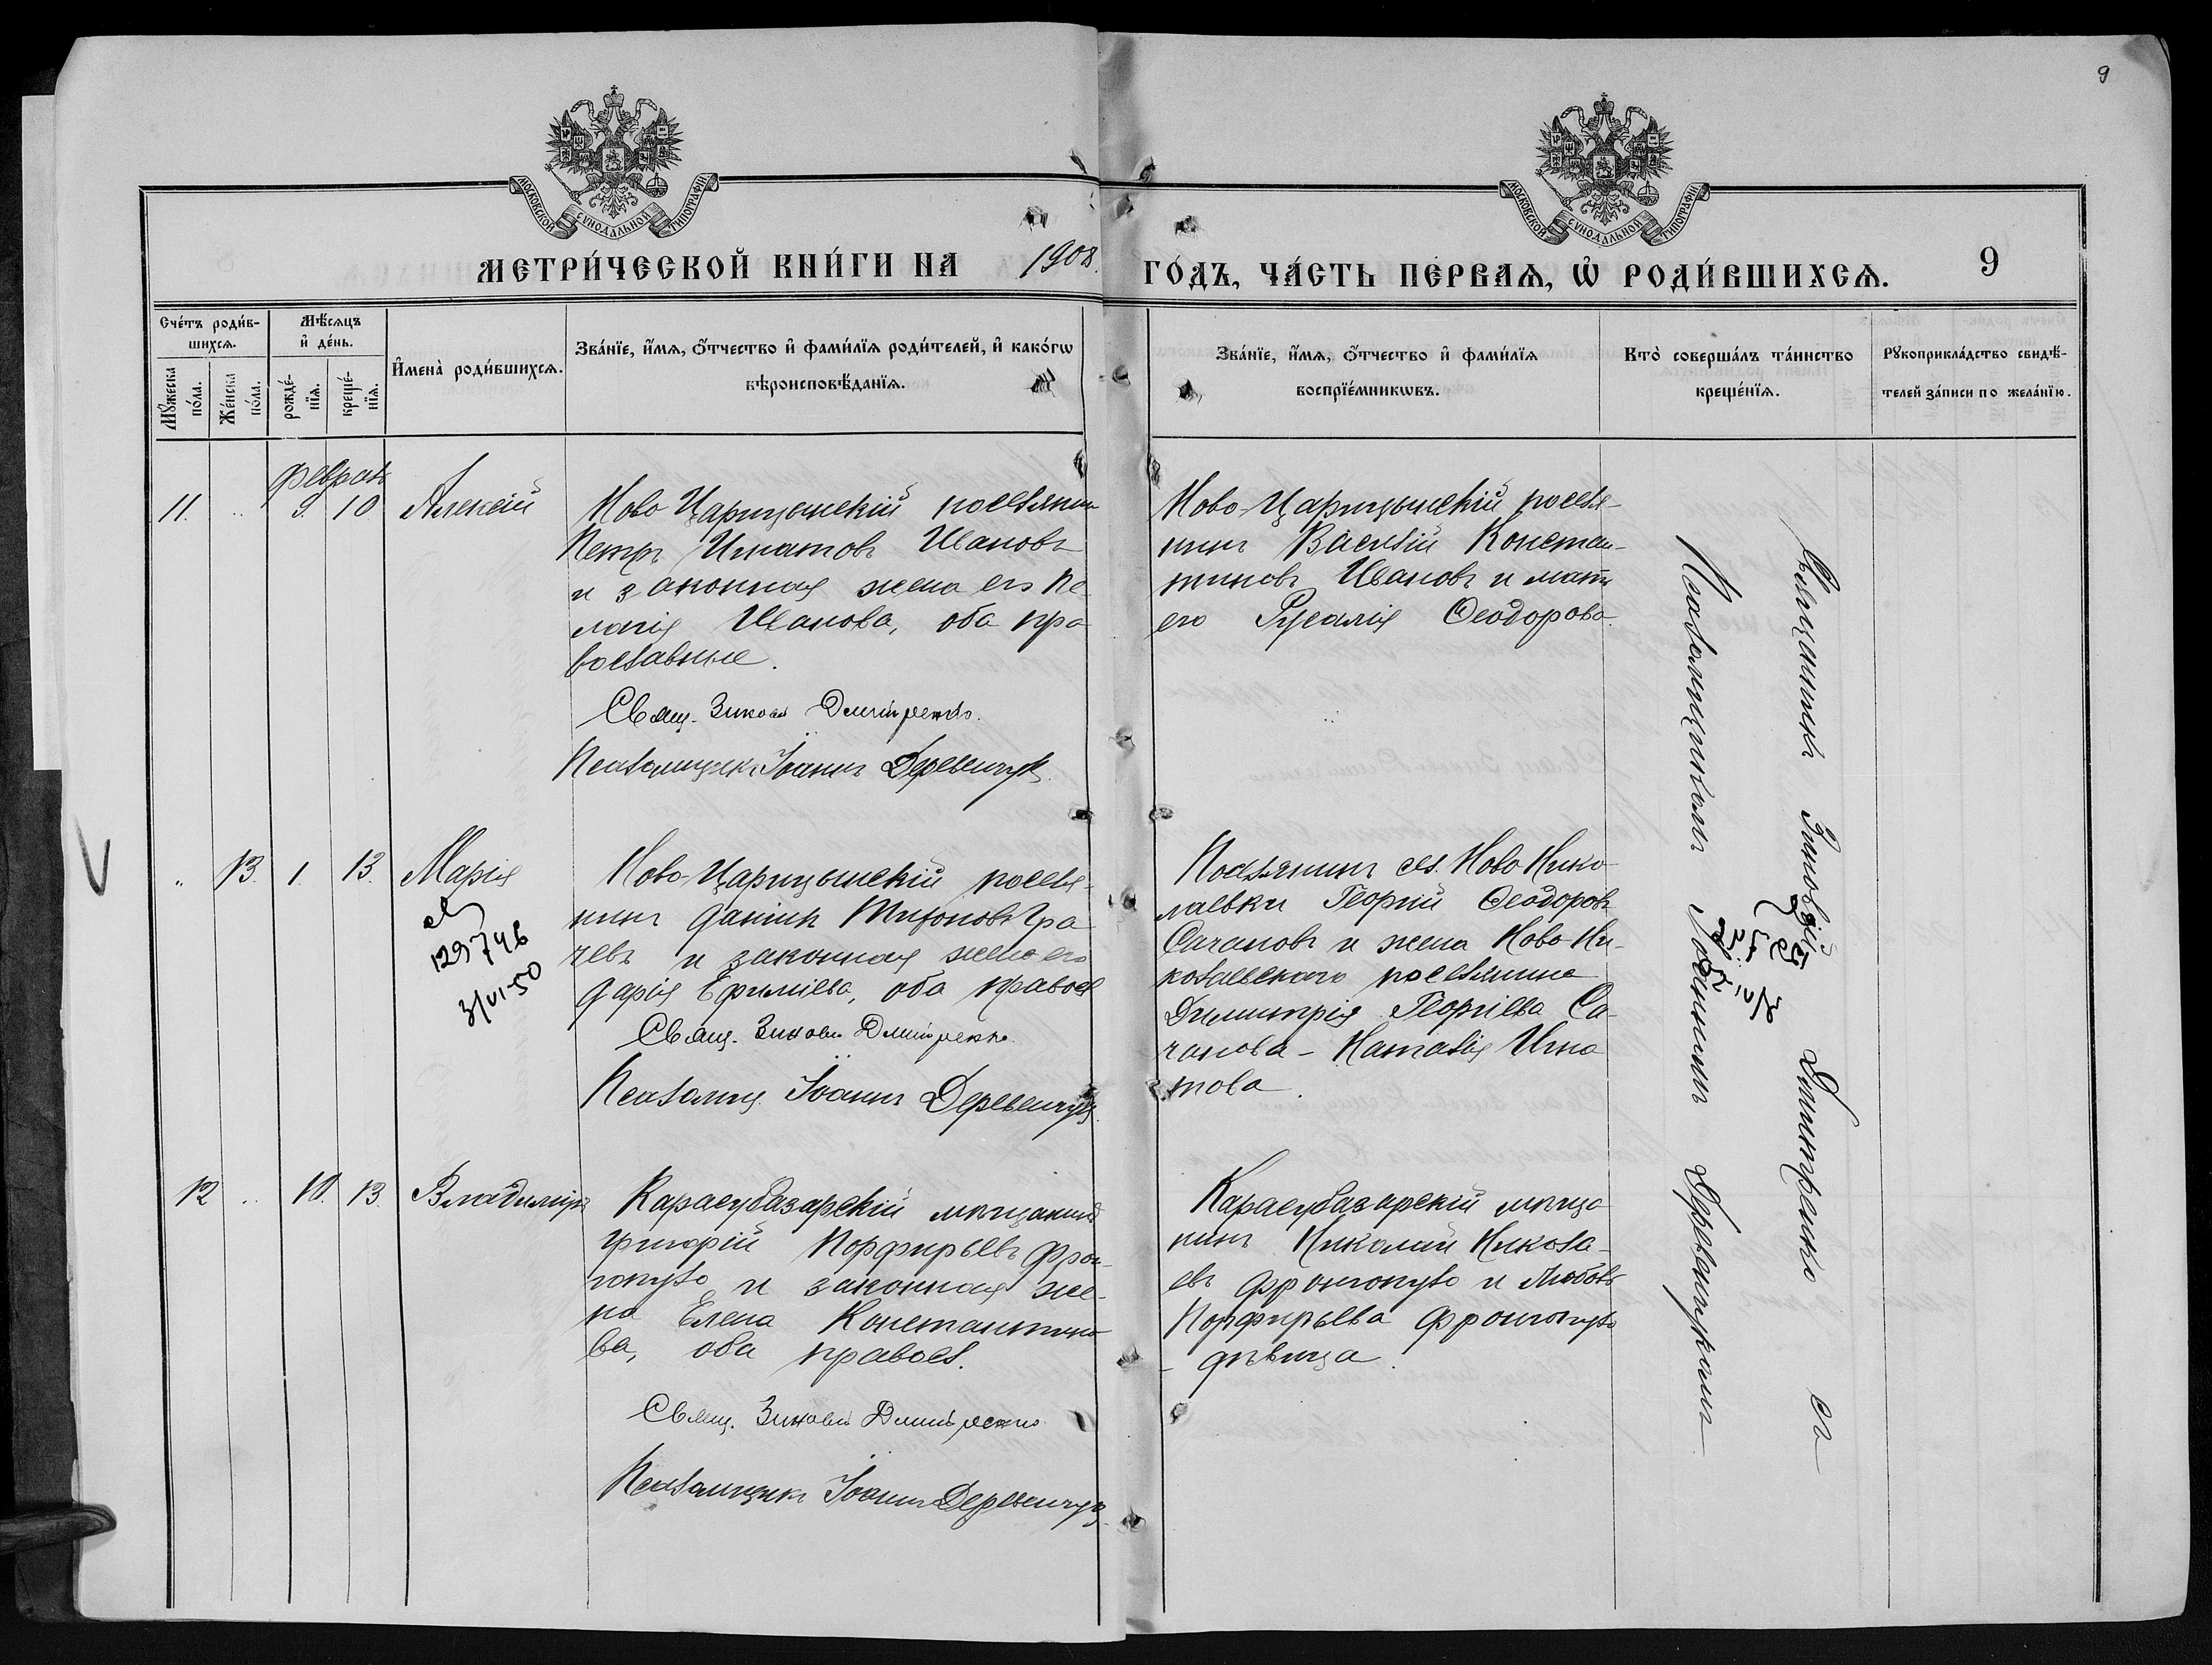 9
МОСКОВСКОЙ СУНОДАЛЬНОЙ ТИПОГРАФІИ
МОСКОВСКОЙ СУНОДАЛЬНОЙ ТИПОГРАФІИ
МЕТРИ́ЧЕСКОЙ КНИ́ГИ НА 1908. ГО́ДЪ, ЧА́СТЬ ПЕ́РВАѦ, Ѡ҆ РОДИ́ВШИХСѦ. 9
Сче́тъ роди́в-
шихсѧ.
Мꙋ́жеска по́ла.
Же́нска по́ла.
Мѣ́сяцъ
и҆ де́нь.
рожде́-
нїѧ.
креще́-
нїѧ.
И҆мена̀ роди́вшихсѧ.
Зва́нїе, и҆́мѧ, ѻ҆́тчество и҆ фами́лїѧ роди́телей, и҆ како́гѡ
вѣроисповѣ́данїѧ.
Зва́нїе, и҆́мѧ, ѻ҆́тчество и҆ фами́лїѧ
воспрїе́мникѡвъ.
Кто̀ соверша́лъ та́инство
креще́нїѧ.
Рꙋкоприкла́дство свидѣ́-
телей за́писи по жела́нїю.
Феврал
11. .. 9. 10 Алексій
Ново-Царицынскій поселянин
Петръ Игнатовъ Ивановъ
и законная жена его Пе
лагія Иванова, оба пра
вославные.
Свящ. Зиновій Дмитренко.
Псаломщикъ Іоаннъ Деревенчук
Ново-Царицынскій поселя-
нинъ Василій Констан-
тиновъ Ивановъ и мать
его Русалія Ѳеодорова.
" 13. 1. 13. Марія
129746
3/VI-50
Ново-Царицынскій поселя-
нинъ Даніилъ Тифоновъ Гра
чевъ и законная жена его
Дарія Ефиміева, оба правосл
Свящ. Зиновій Дмитренко.
Псаломщ. Іоаннъ Деревенчук
Поселянинъ сел. Ново-Нико-
лаевки Георгій Ѳеодоровъ
Сачановъ и жена Ново-Ни-
колаевскаго поселянина
Димитрія Георгіева Са-
чанова - Наталія Игна
това.
12 .. 10. 13. Владиміръ
Карасубазарскій мѣщанинъ
Григорій Порфирьевъ Фрон-
гопуло и законная же-
на Елена Константино
ва, оба правосл.
Свящ. Зиновій Дмитренко
Псаломщикъ Іоаннъ Деревенчук
Карасубазарскій мѣща-
нинъ Николай Никола-
евъ Фронгопуло и Любовь
Порфирьева Фронгопуло
- дѣвица.
Священникъ Зиновій Димитренко съ
Псаломщикомъ Іоанномъ Деревенчукомъ